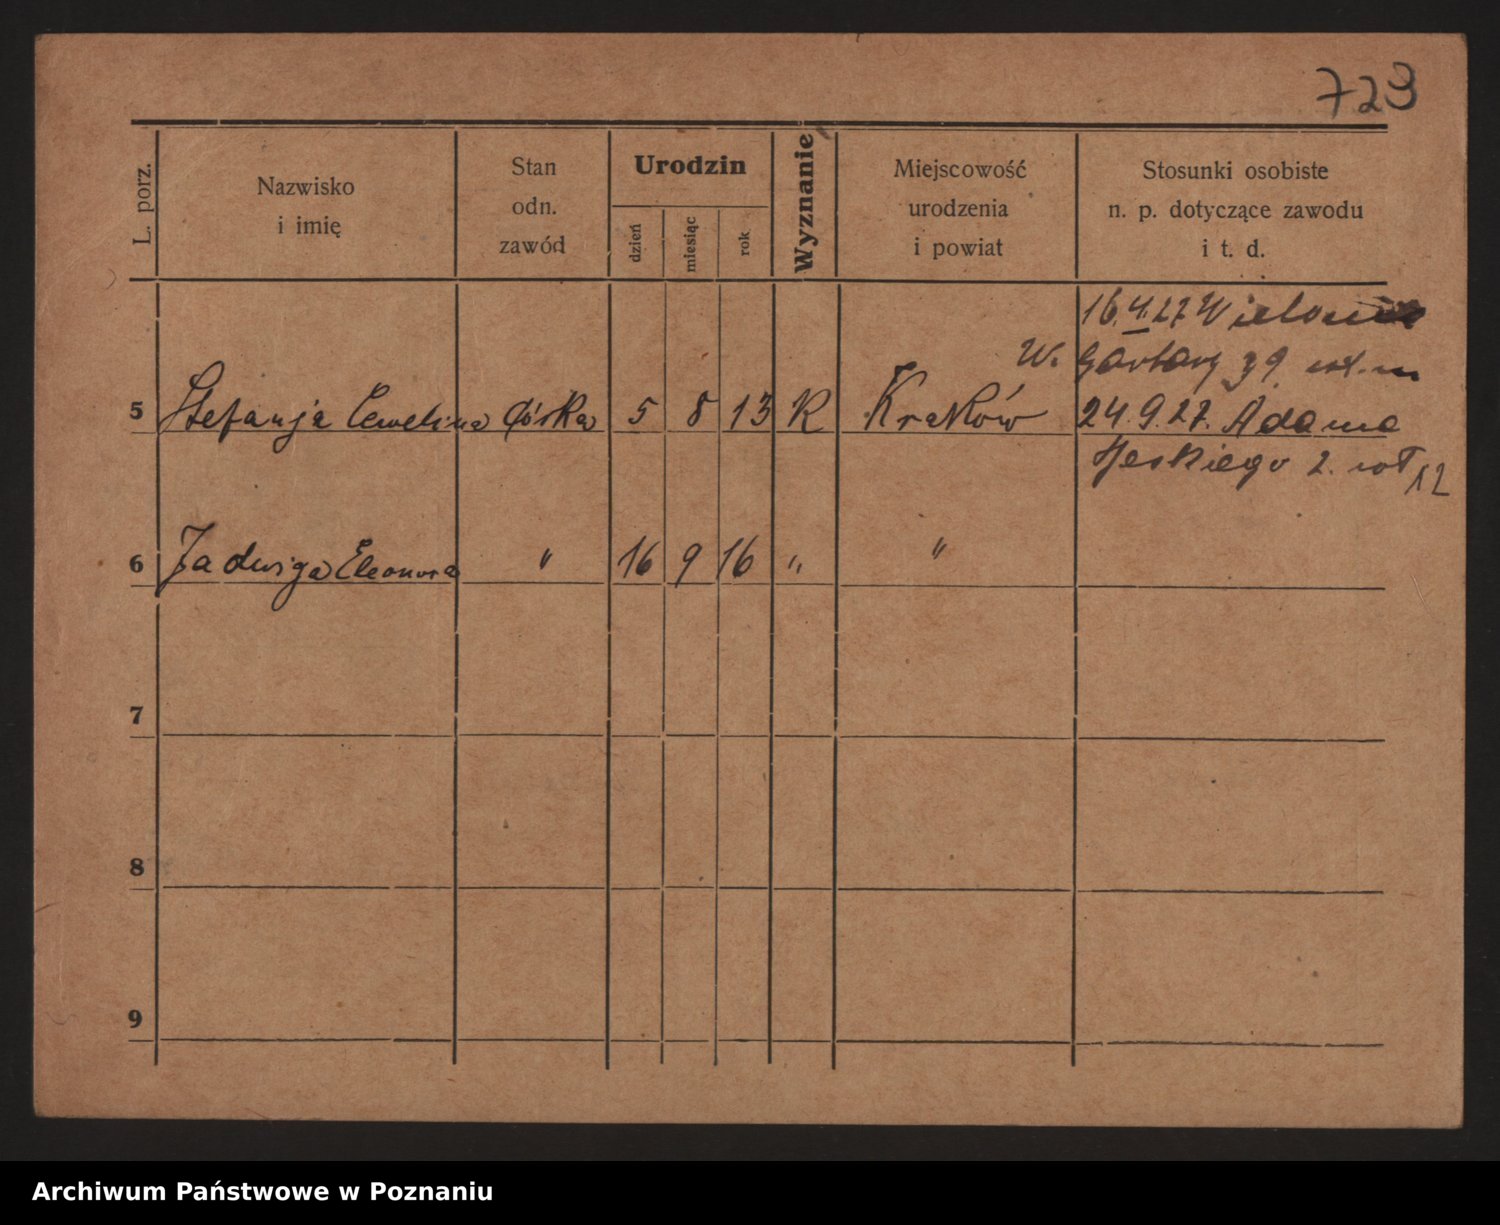 723
L. porz.
Nazwisko
i imię
Stan
odn.
zawód
Urodzin
dzień
miesiąc
rok
Wyznanie
Miejscowość
urodzenia
i powiat
Stosunki osobiste
n. p. dotyczące zawodu
i t. d.
16.4.27
W. Garbary 39
5 Stefanja Ewelina córka 5 8 13 K Kraków 24.9.27. Adama
2. 12
6 Jadwiga Eleonora " 16 9 16 " "
7
8
9
Archiwum Państwowe w Poznaniu